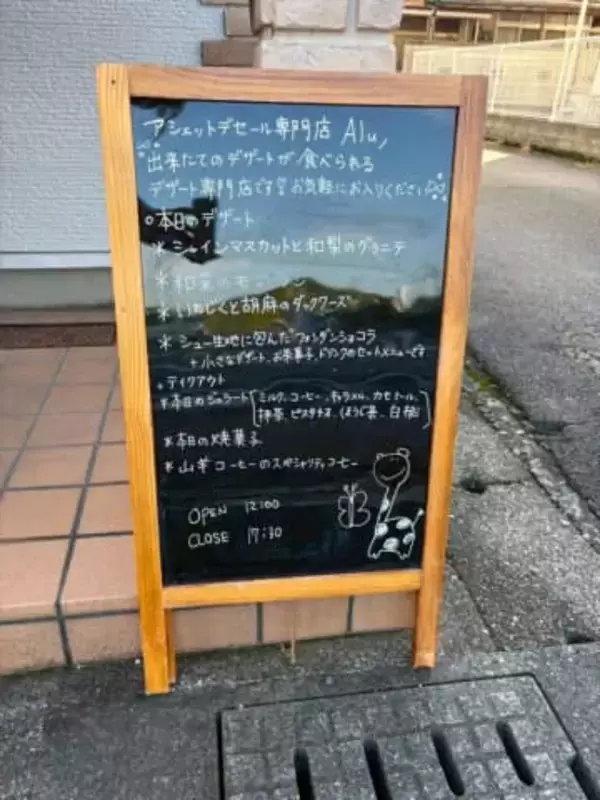 アシェットデセール専門店 Alu,
出来たてのデザートが食べられる
デザート専門店です お気軽にお入りください
○本日のデザート
＊シャインマスカットと和梨のグラニテ
＊和栗のモンブラン
＊いちじくと胡麻のダックワーズ
＊シュー生地に包んだフォンダンショコラ
+小さなデザート、お茶菓子、ドリンクのセットメニューです
○テイクアウト
＊本日のジェラート [ミルク、コーヒー、キャラメル、カセドール、
抹茶、ピスタチオ、ほうじ茶、白桃]
＊本日の焼菓子
＊山羊コーヒーのスペシャリティコーヒー
OPEN 12:00
CLOSE 17:30